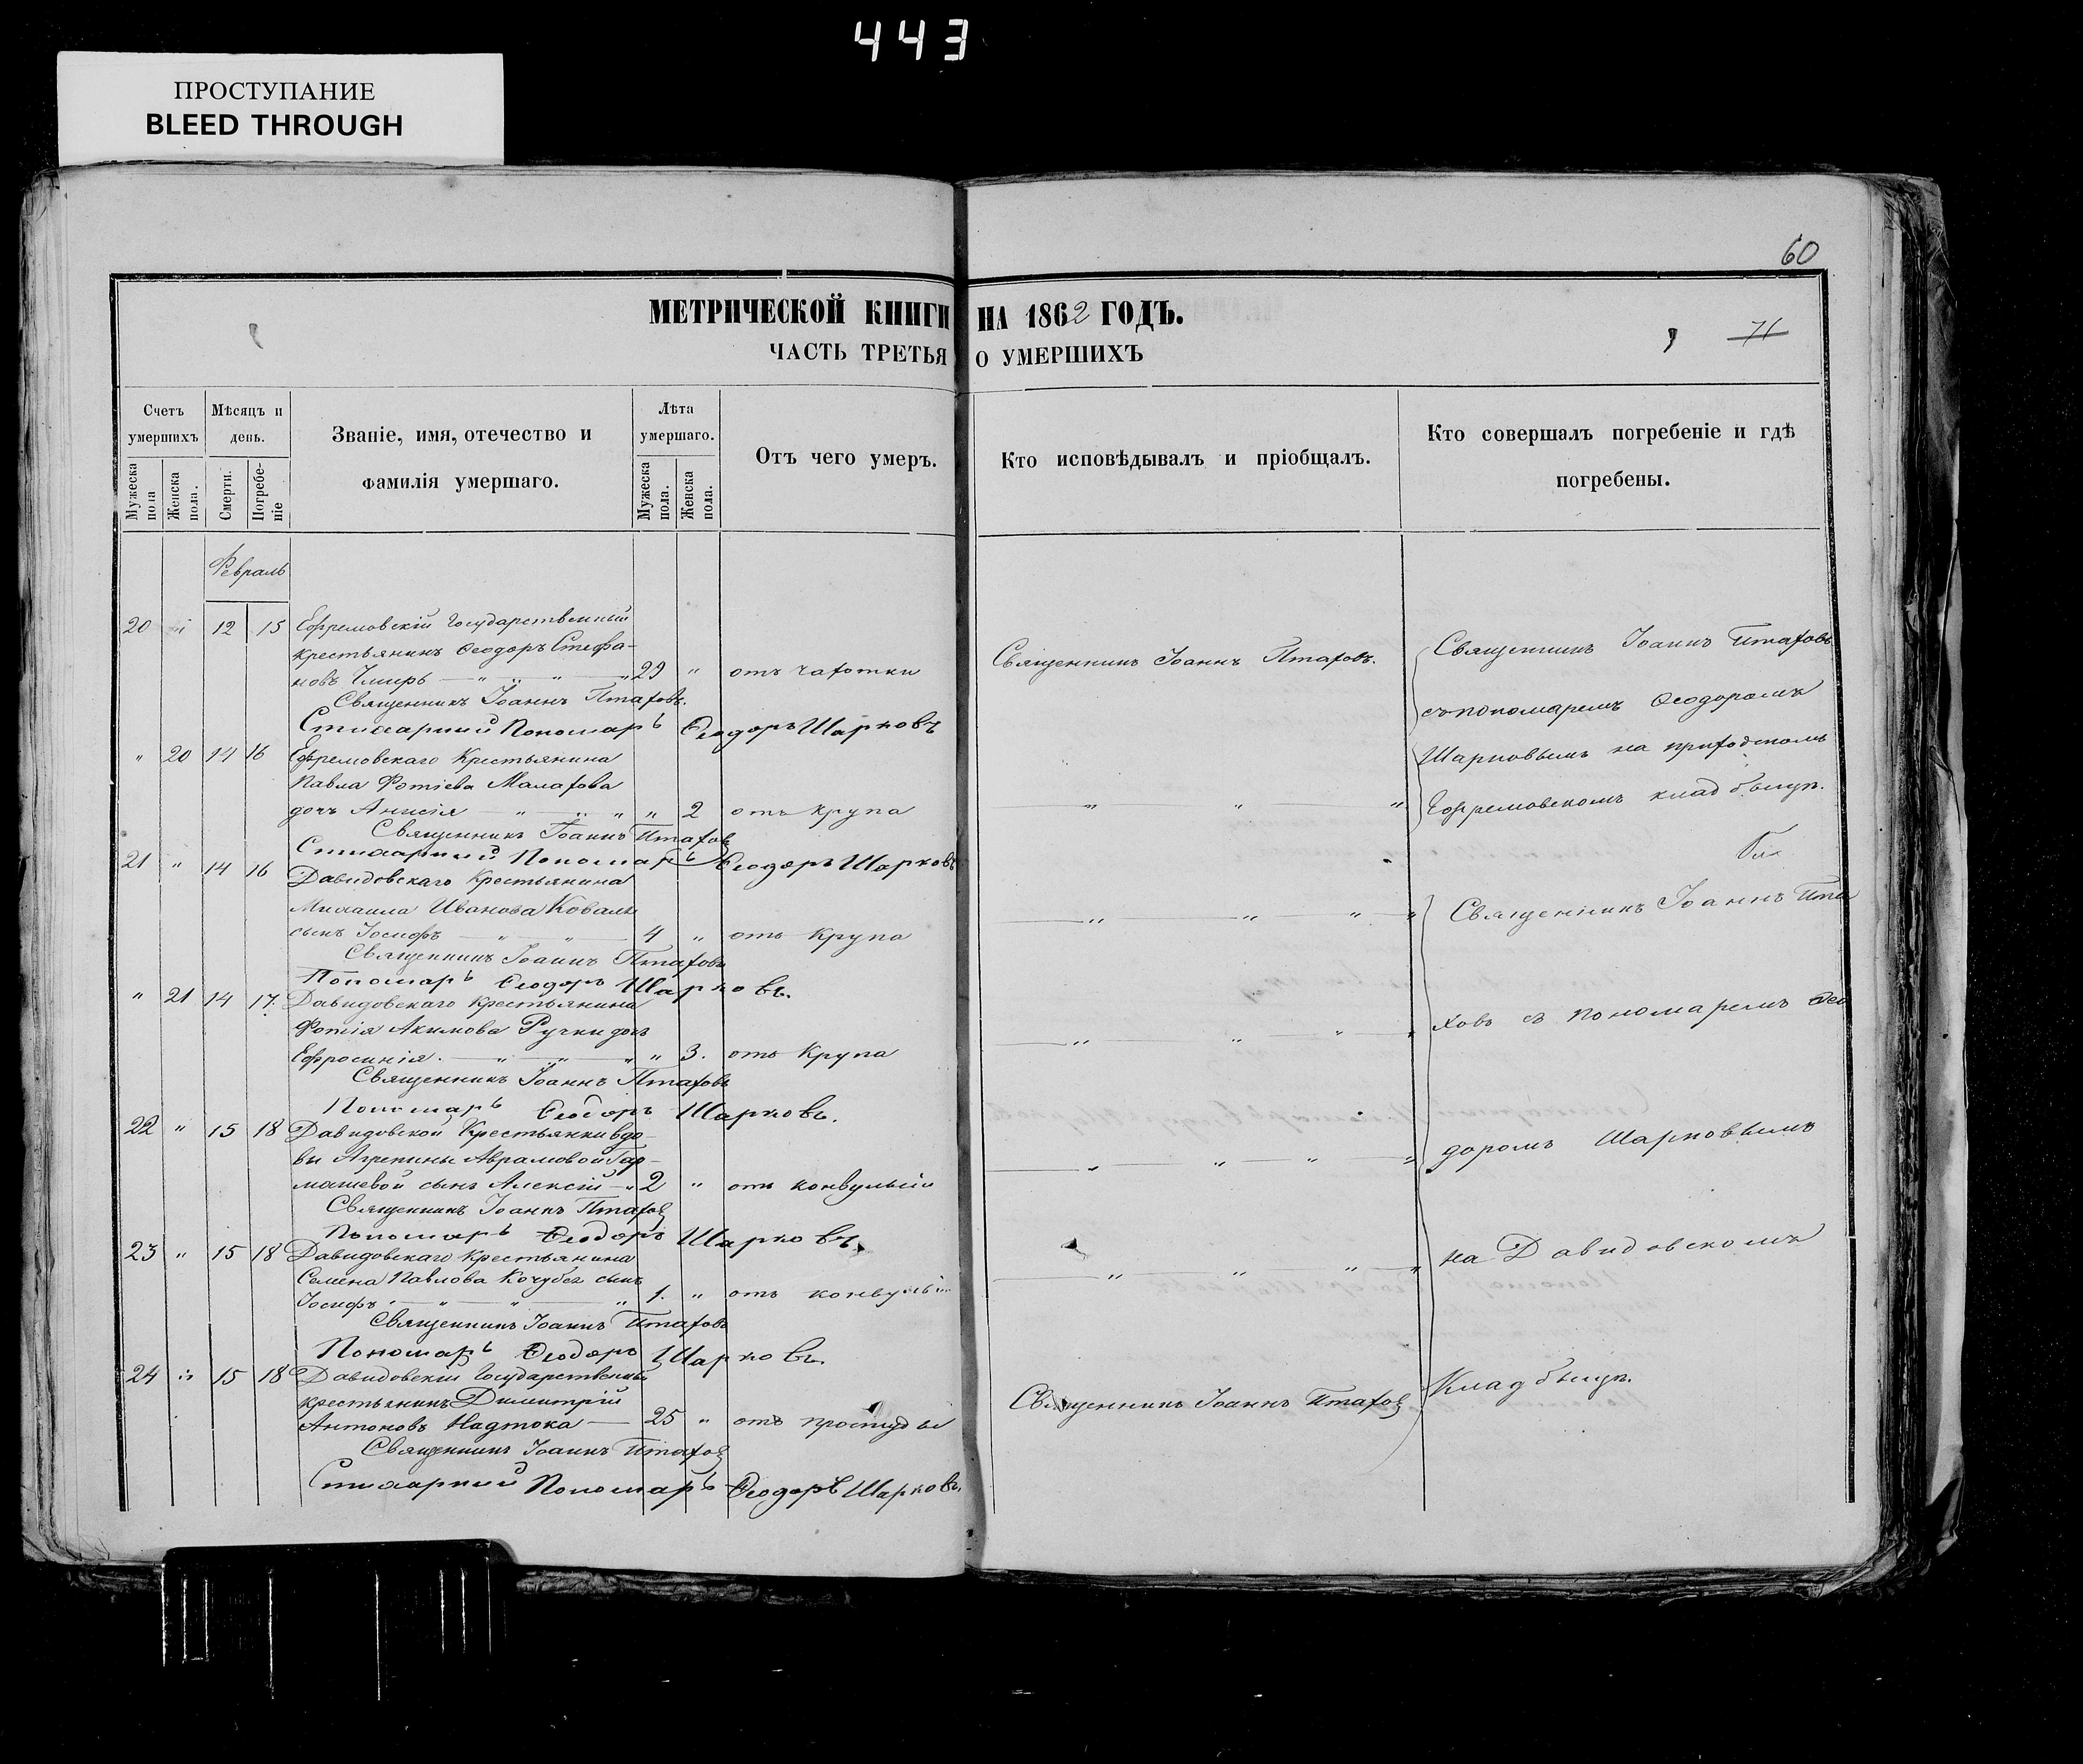 443
ПРОСТУПАНИЕ
BLEED THROUGH
60
МЕТРИЧЕСКОЙ КНИГИ НА 1862 ГОДЪ.
71
ЧАСТЬ ТРЕТЬЯ О УМЕРШИХЪ
Счетъ умершихъ
Мужеска пола
Женска пола.
Мѣсяцъ и день.
Смерти.
Погребеніе
Званіе, имя, отечество и фамилія умершаго.
Лѣта умершаго.
Мужеска пола.
Женска пола.
Отъ чего умеръ.
Кто исповѣдывалъ и пріобщалъ.
Кто совершалъ погребеніе и гдѣ погребены.
Февраль
20 " 12 15 Ефремовскій Государственный
крестьянинъ Ѳеодоръ Стефа-
новъ Чмирь 29 " отъ чахотки
Священникъ Іоаннъ Птаховъ.
Священникъ Іоаннъ Птаховъ
Священникъ Іоаннъ Птаховъ.
Стихарный Пономарь Ѳеодоръ Шарковъ
съ пономаремъ Ѳеодоромъ
" 20 14 16 Ефремовскаго Крестьянина
Павла Фотіева Малахова
дочь Анисія " 2 отъ крупа
Шарковымъ на приходскомъ
Ефремовскомъ кладбищѣ.
Священникъ Іоаннъ Птаховъ
Стихарный Пономарь Ѳеодоръ Шарковъ
21 " 14 16 Давидовскаго Крестьянина
Михаила Иванова Коваля
сынъ Іосифъ 4 " отъ крупа
Священникъ Іоаннъ Пта
Священникъ Іоаннъ Птаховъ
Пономарь Ѳеодоръ Шарковъ.
" 21 14 17. Давидовскаго крестьянина
Фотія Акимова Ручки дочь
Ефросинія. " 3. отъ Крупа
ховъ съ пономаремъ Ѳео
Священникъ Іоаннъ Птаховъ
Пономарь Ѳеодоръ Шарковъ.
22 " 15 18 Давидовской Крестьянки вдо-
вы Агрепины Аврамовой Гар-
машевой сынъ Алексій 2 " отъ конвульсіи
доромъ Шарковымъ
Священникъ Іоаннъ Птаховъ
Пономарь Ѳеодоръ Шарковъ.
23 " 15 18 Давидовскаго крестьянина
Семена Павлова Кочубея сынъ
Іосифъ 1. " отъ конвульсіи
на Давидовскомъ
Священникъ Іоаннъ Птаховъ
Пономарь Ѳеодоръ Шарковъ.
24 " 15 18 Давидовскій Государственный
крестьянинъ Димитрій
Антоновъ Надтока 25 " отъ простуды
Священникъ Іоаннъ Птаховъ
Кладбищѣ.
Священникъ Іоаннъ Птаховъ
Стихарный Пономарь Ѳеодоръ Шарковъ.